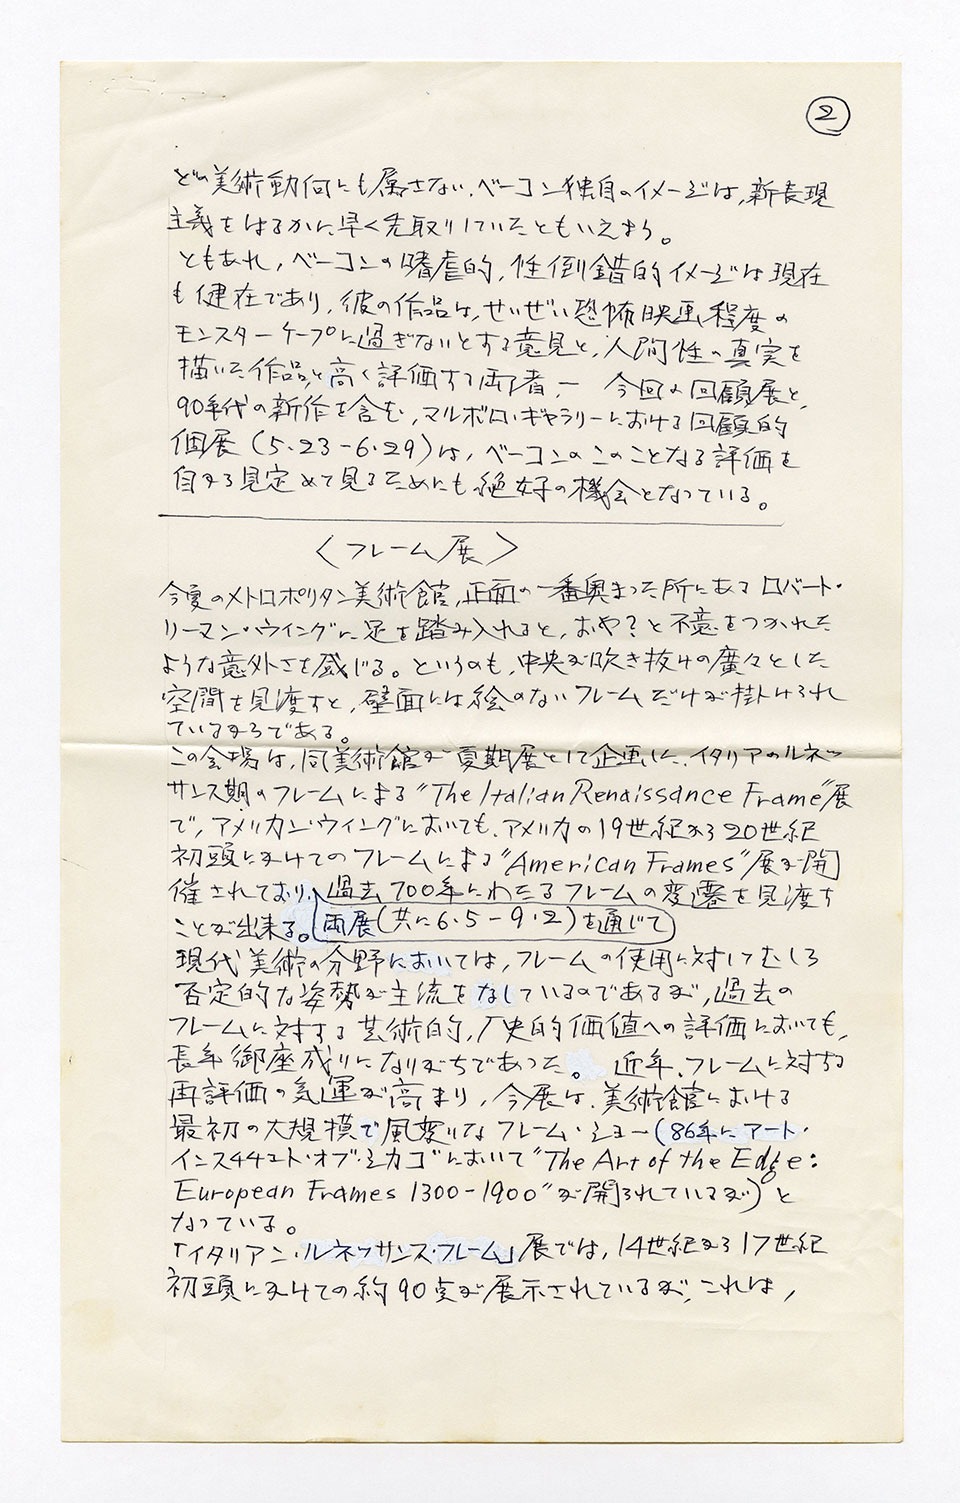 ②
どの美術動向にも属さない、ベーコン独自のイメージは、新表現
主義をはるかに早く先取りしていたともいえよう。
ともあれ、ベーコンの嗜虐的、性倒錯的イメージは現在
も健在であり、彼の作品は、せいぜい恐怖映画程度の
モンスターケープに過ぎないとする意見と、人間性の真実を
描いた作品と高く評価する両者ー 今回の回顧展と、
90年代の新作を含む、マルボロ・ギャラリーにおける回顧的
個展(5・23-6・29)は、ベーコンのこのことなる評価を
自から見定めて見るためにも絶好の機会となっている。
〈フレーム展〉
今夏のメトロポリタン美術館、正面の一番奥まった所にあるロバート・
リーマン・ウイングに足を踏み入れると、おや?と不意をつかれた
ような意外さを感じる。というのも、中央が吹き抜けの広々とした
空間を見渡すと、壁面には絵のないフレームだけが掛けられ
ているからである。
この会場は、同美術館が夏期展として企画した、イタリアのルネッ
サンス期のフレームによる"The Italian Renaissance Frame"展
で、アメリカン・ウイングにおいても、アメリカの19世紀から20世紀
初頭にかけてのフレームによる"American Frames"展が開
催されており、過去700年にわたるフレームの変遷を見渡す
ことが出来る。両展(共に6・5-9・2)を通じて
現代美術の分野においては、フレームの使用に対してむしろ
否定的な姿勢が主流をなしているのであるが、過去の
フレームに対する芸術的、歴史的価値への評価においても、
長年御座成りになりがちであった。 近年、フレームに対する
再評価の気運が高まり、今展は、美術館における
最初の大規模で風変りなフレーム・ショー(86年にアート・
インスチチュート・オブ・シカゴにおいて"The Art of the Edge:
European Frames 1300-1900"が開られているが)と
なっている。
「イタリアン・ルネッサンス・フレーム」展では、14世紀から17世紀
初頭にかけての約90点が展示されているが、これは、